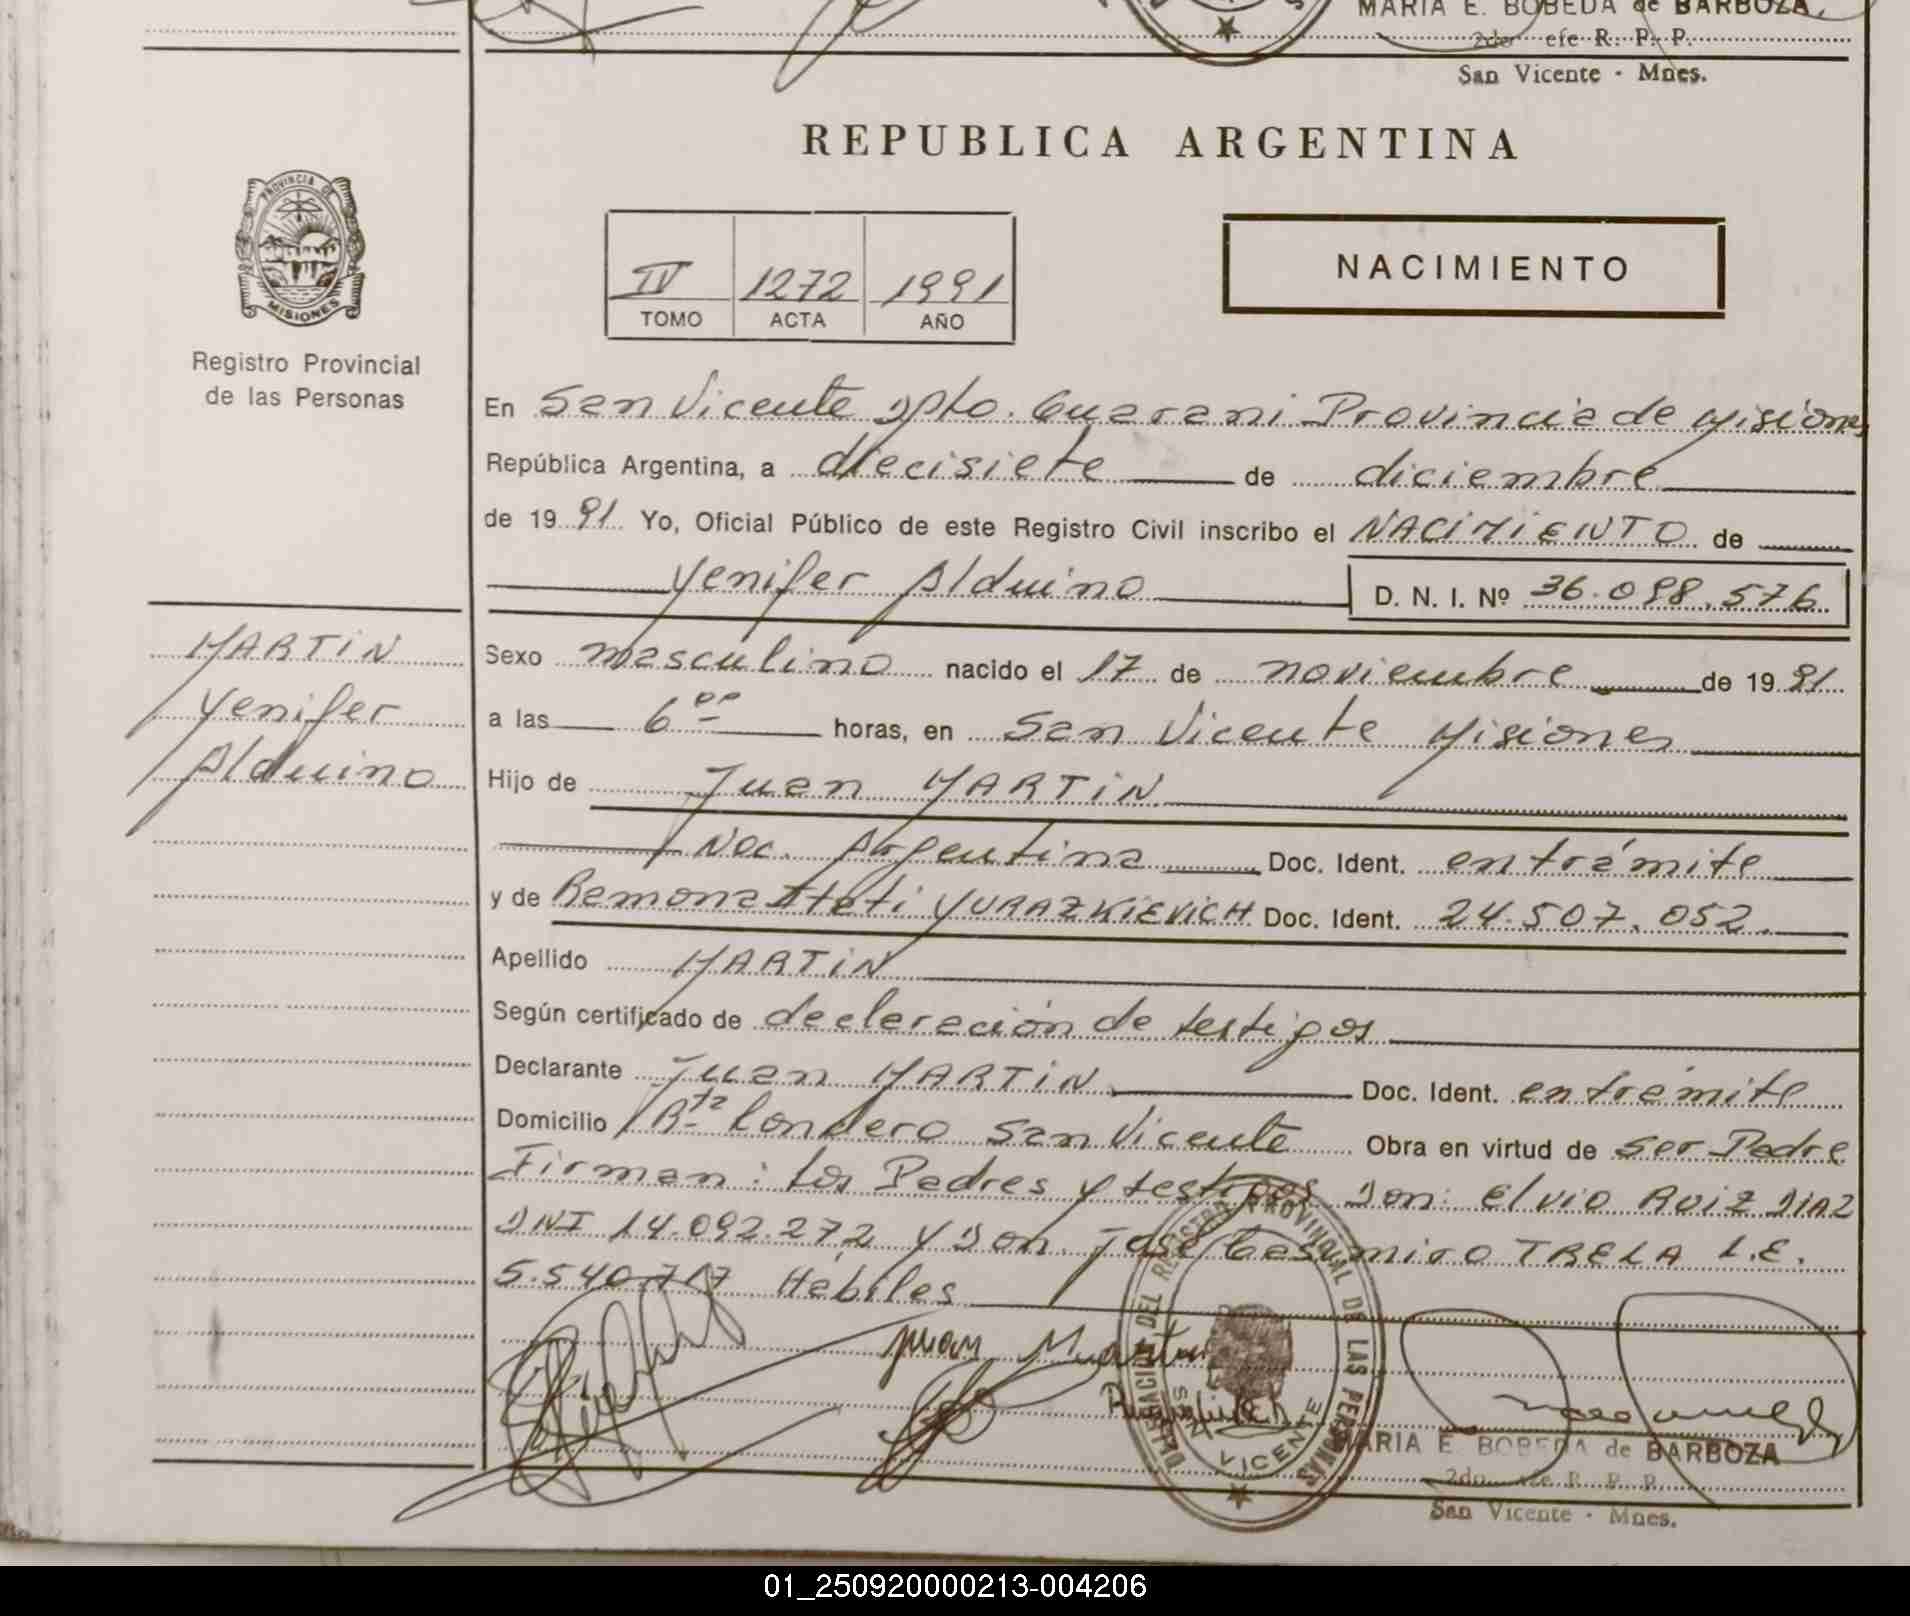 MARIA E. BOBEDA de BARBOZA.
2do efe R. P. P.
San Vicente - Mnes.
REPUBLICA ARGENTINA
PROVINCIA DE
MISIONES
Registro Provincial
de las Personas
IV 1272 1991
TOMO ACTA AÑO
NACIMIENTO
En San Vicente Dpto. Guarani Provincia de Misiones
República Argentina, a diecisiete de diciembre
de 1991 Yo, Oficial Público de este Registro Civil inscribo el NACIMIENTO de
Yenifer Alduino D. N. I. Nº 36.098.576
MARTIN
Yenifer
Alduino
Sexo masculino nacido el 17 de noviembre de 1991
a las 6 00 horas, en San Vicente Misiones
Hijo de Juan MARTIN
Nac. Argentina Doc. Ident. en trámite
y de Ramona YURAZKIEVICH Doc. Ident. 24.507.052.
Apellido MARTIN
Según certificado de declaración de testigos
Declarante Juan MARTIN Doc. Ident. en trámite
Domicilio Rta Londero San Vicente Obra en virtud de ser Padre
Firman: Los Padres y testigos Don: Elvio RUIZ DIAZ
DNI 14.092.272 y Don José Casimiro TRELA L.E.
5.540.717 Hábiles
Juan Martin
DEL REGISTRO PROVINCIAL DE LAS PERSONAS
VICENTE
MARIA E. BOBEDA de BARBOZA
2do R. P. P.
San Vicente - Mnes.
01_250920000213-004206